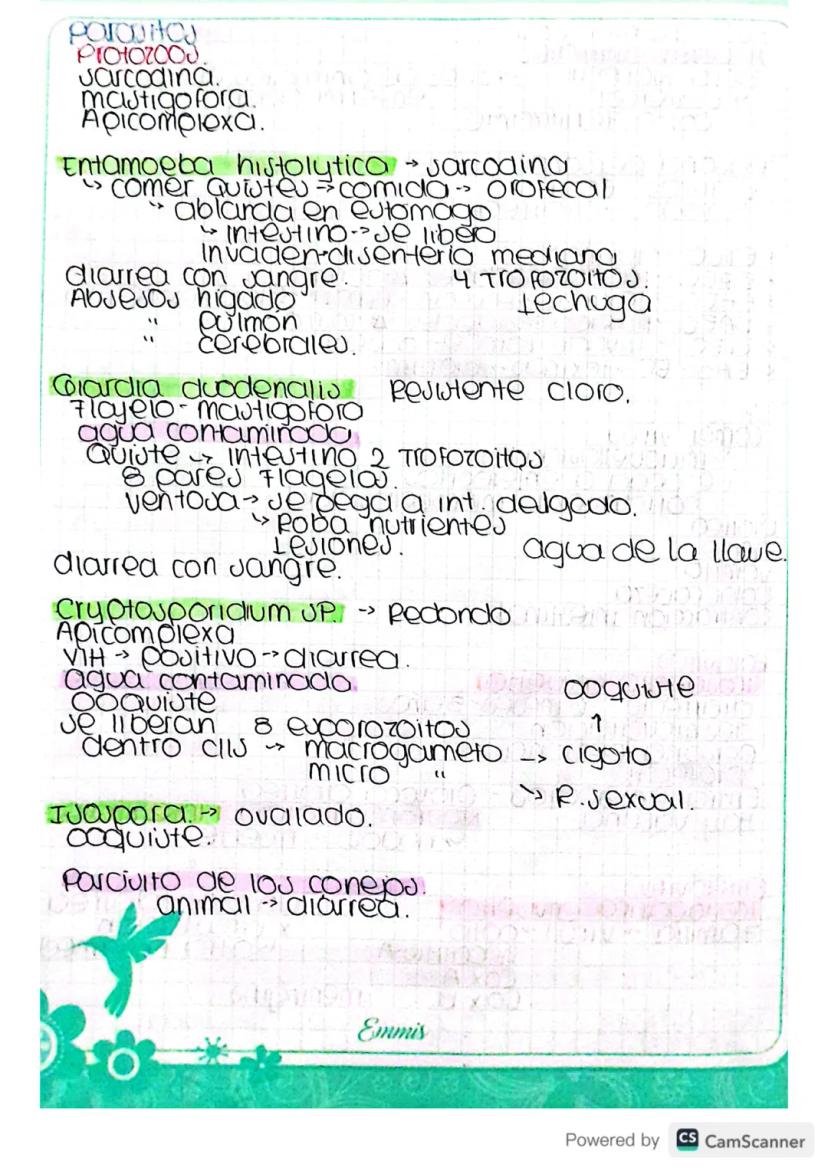 Parasitos
Protozoos.
sarcodina.
mastigofora.
Apicomplexa.
Entamoeba histolytica → sarcodina
↳ comer quistes → comida → orofecal
↳ ablanda en estomago
↳ intestino → se libera
invaden-disenteria mediana
diarrea con sangre. 4 Trofozoitos.
Absesos higado Lechuga
" pulmón
" cerebrales.
Giardia duodenalis Resistente cloro.
Flagelo - mastigoforo
agua contaminada
Quiste → intestino 2 Trofozoitos
8 pares flagelos.
ventosa → se pega a int. delgado.
↳ Roba nutrientes
Lesiones. agua de la llave.
diarrea con sangre.
Cryptosporidium SP. → Redondo
Apicomplexa
VIH → positivo → diarrea.
agua contaminada ooquiste
ooquiste ↑
se liberan 8 esporozoitos
dentro clls → macrogameto → cigoto
micro " ↘ R. sexual.
Isospora → ovalado.
ooquiste.
Parasito de los conejos.
animal → diarrea.
Emmis
Powered by CS CamScanner